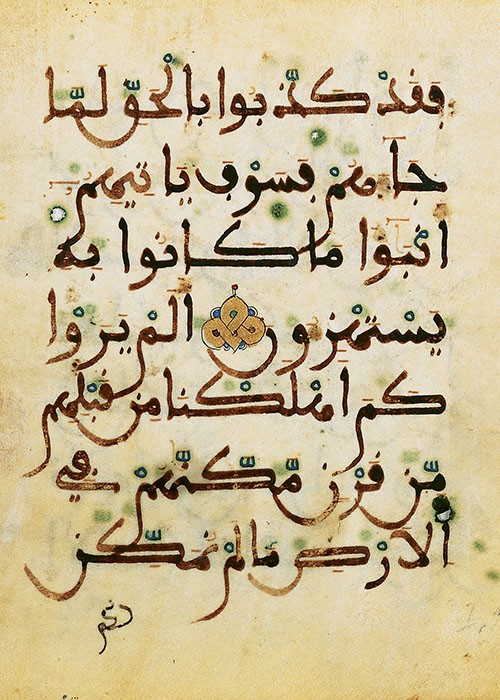 فقد كذبوا بالحق لما
جاءهم فسوف ياتيهم
انبؤا ما كانوا به
يستهزءون الم يروا
كم اهلكنا من قبلهم
من قرن مكنهم في
الارض ما لم نمكن